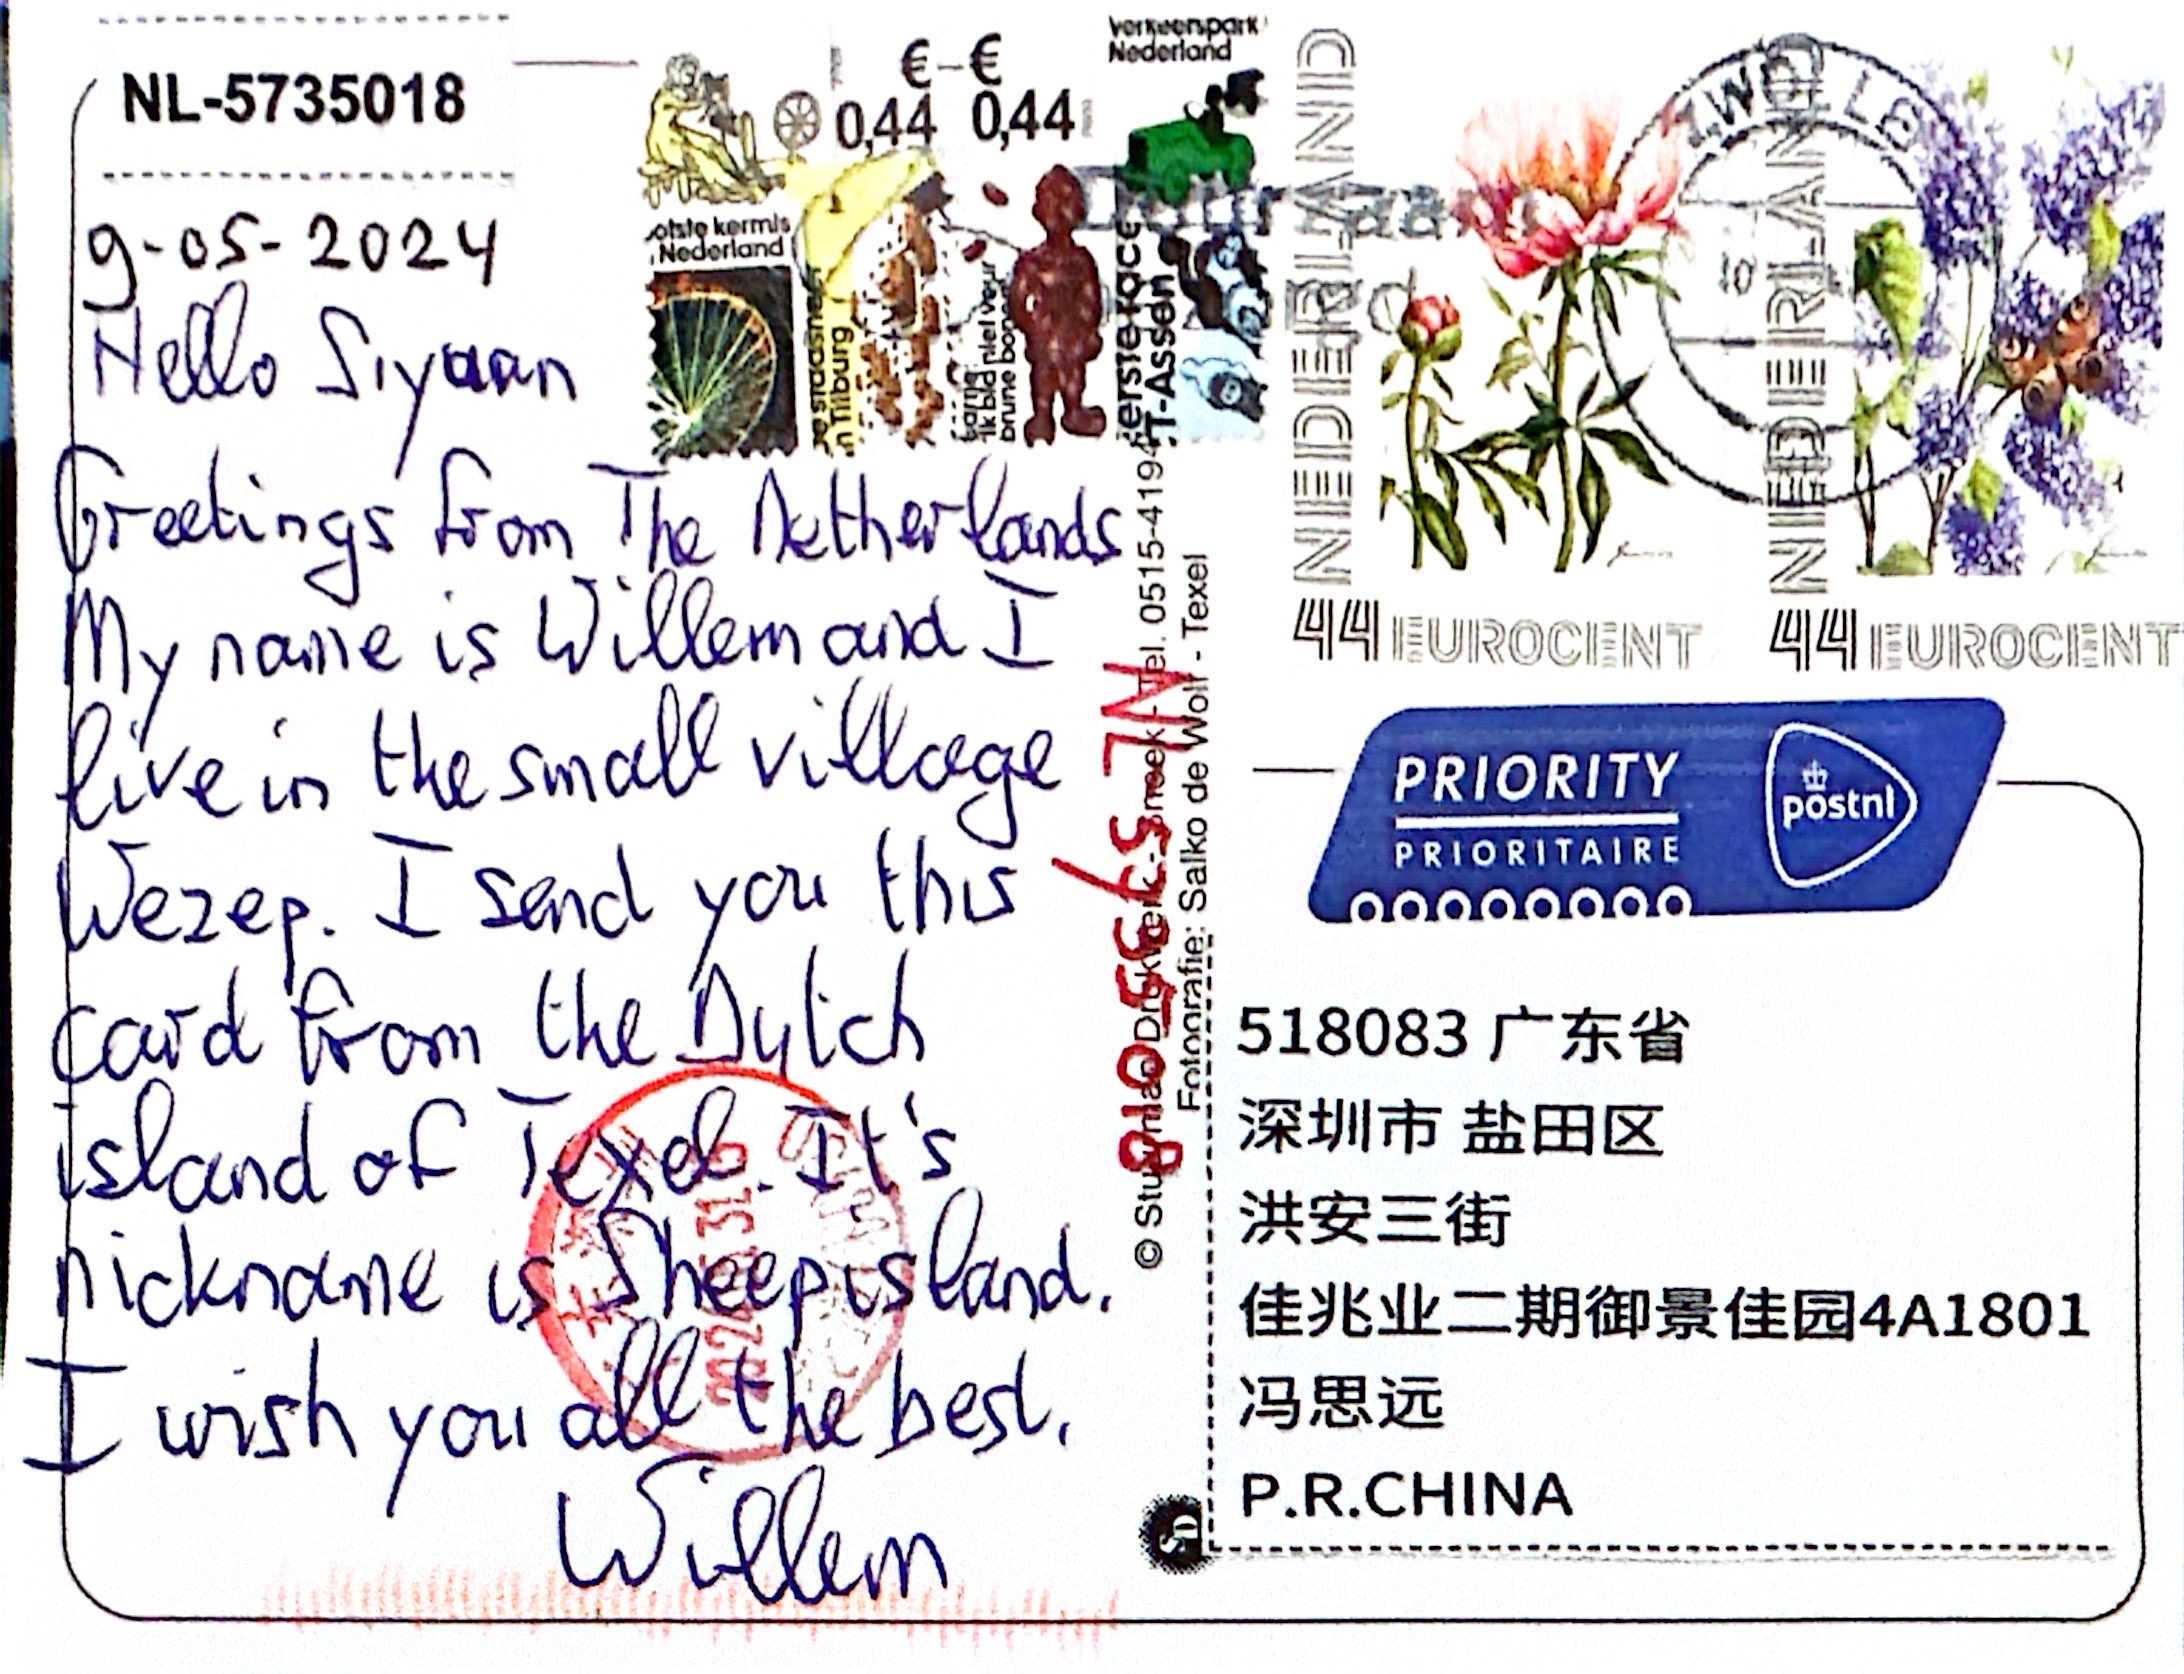 NL-5735018
9-05-2024
Hello Siyuan
Greetings from The Netherlands
My name is Willem and I
live in the small village
Wezep. I send you this
card from the Dutch
island of Texel. It's
nickname is Sheepisland.
I wish you all the best.
Willem
€ - €
0,44 0,44
Verkeerspark
Nederland
otste kermis
Nederland
n Tilburg
ik bid niet veur
brune bonen
TT-Assen
NEDERLAND
44 EUROCENT
NEDERLAND
44 EUROCENT
PRIORITY
PRIORITAIRE
postnl
Tel. 0515-4194
Fotografie: Salko de Wolf - Texel
NL 5735018
518083 广东省
深圳市 盐田区
洪安三街
佳兆业二期御景佳园4A1801
冯思远
P.R.CHINA
SD